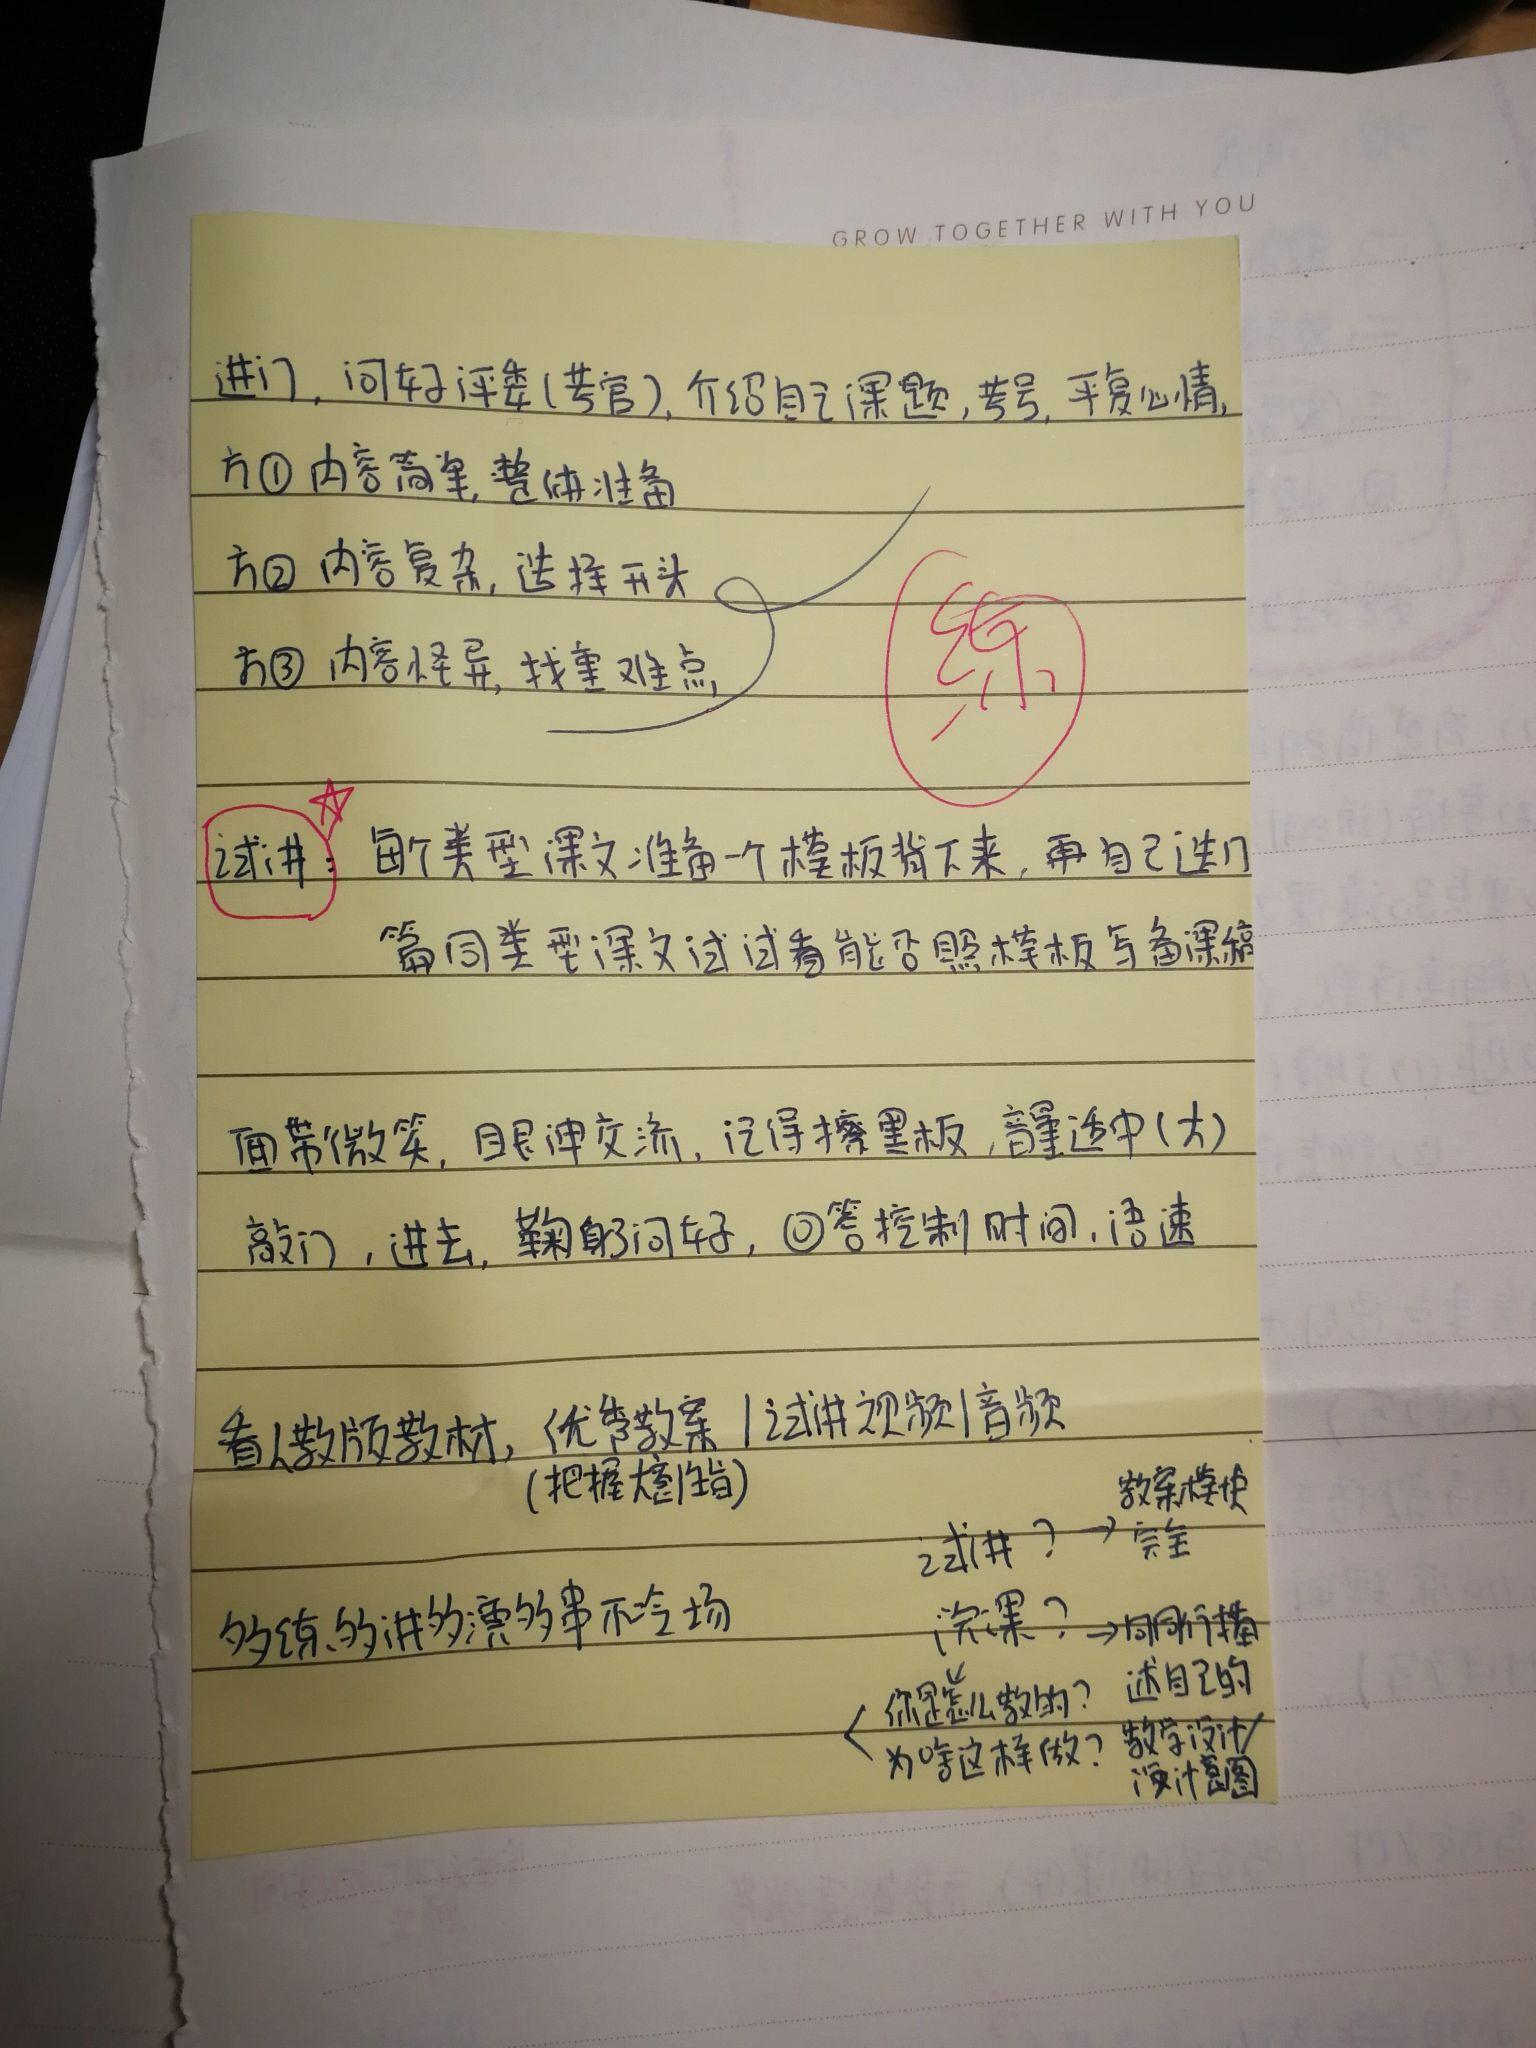 GROW TOGETHER WITH YOU
进门，问好评委(考官)，介绍自己课题，考号，平复心情，
方① 内容简单，整体准备
方② 内容复杂，选择开头
方③ 内容怪异，找重难点，
练
试讲：每个类型课文准备一个模板背下来，再自己选几
篇同类型课文试试看能否照模板写备课稿
面带微笑，眼神交流，记得擦黑板，音量适中(大)
敲门，进去，鞠躬问好，回答控制时间，语速
看人教版教材，优秀教案/试讲视频/音频
(把握大意)
试讲？→教案模块
完全
多练多讲多演多串不冷场
说课？→向同行描
述自己的
教学设计/
设计意图
你是怎么教的？
为啥这样做？